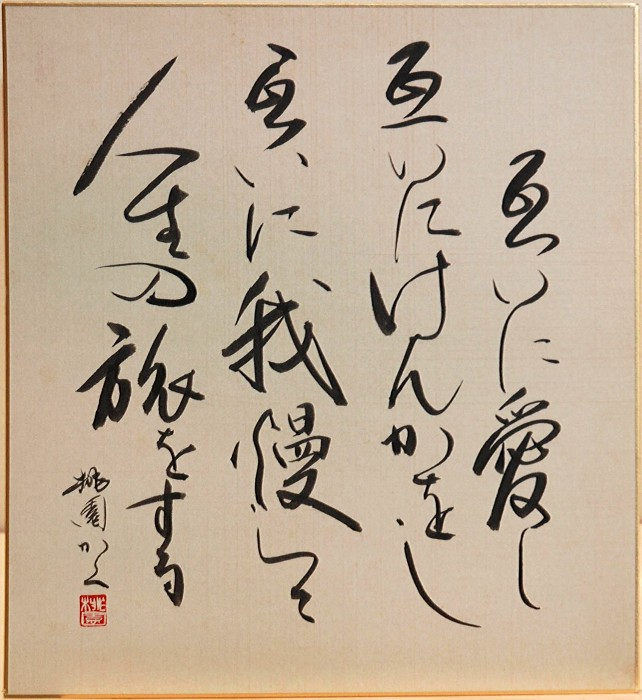 互いに愛し
互いにけんかをし
互いに我慢して
人生の旅をする
桃園かく
桃園